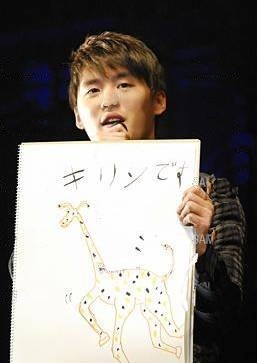 キリンです